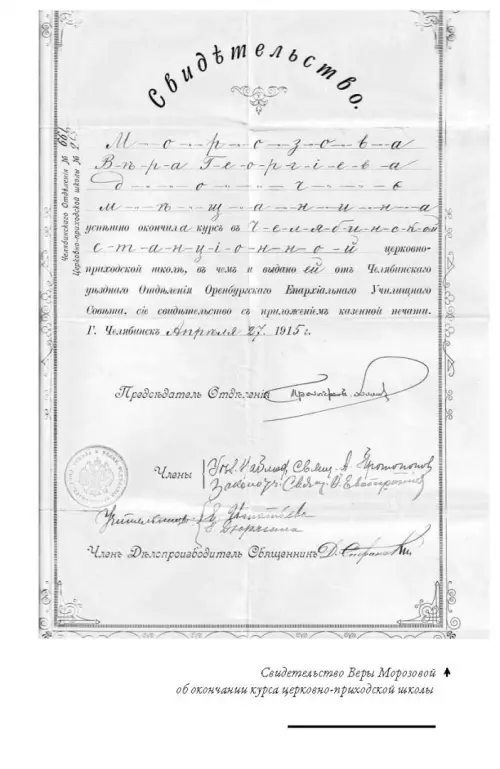 Свидѣтельство.
Челябинскаго Отдѣленія №
Церковно-приходской школы №
Морозова
Вѣра Георгіева
дочь
мѣщанина
успѣшно окончила курсъ въ Челябинской
станціонной церковно-
приходской школѣ, въ чемъ и выдано ей отъ Челябинскаго
уѣзднаго Отдѣленія Оренбургскаго Епархіальнаго Училищнаго
Совѣта, сіе свидѣтельство съ приложеніемъ казенной печати.
Г. Челябинскъ Апрѣля 27 1915 г.
Предсѣдатель Отдѣленія
Члены
Свящ. А. Протопопов
Учительницы
Членъ Дѣлопроизводитель Священникъ Д.
Свидетельство Веры Морозовой
об окончании курса церковно-приходской школы